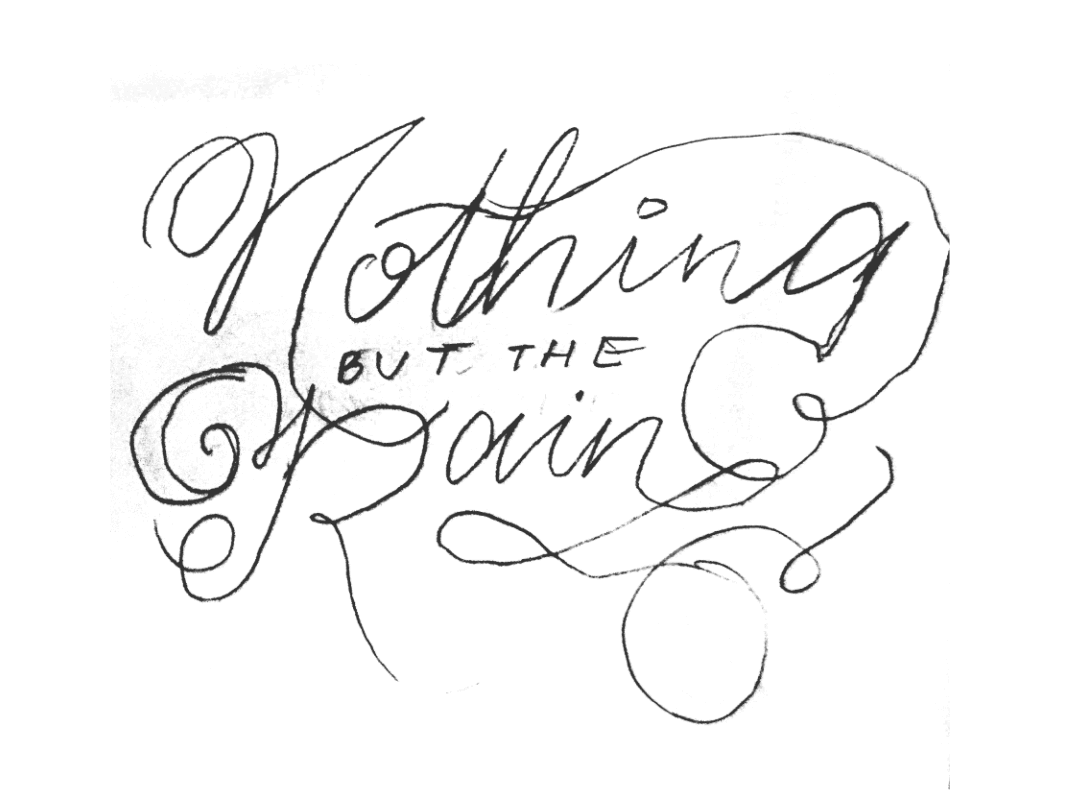 Nothing
BUT THE
Rain